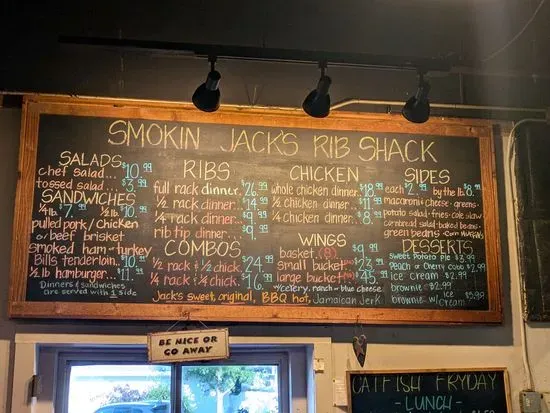 SMOKIN JACK'S RIB SHACK
SALADS
chef salad... $10.99
tossed salad... $3.99
SANDWICHES
1/4 lb $7.99 1/2 lb $10.99
pulled pork/chicken
or beef brisket
smoked ham or turkey
Bills tenderloin. $10.99
1/2 lb hamburger... $11.99
Dinners & sandwiches
are served with 1 side
RIBS
full rack dinner. $26.99
1/2 rack dinner... $14.99
1/4 rack dinner... $9.99
rib tip dinner... $9.
COMBOS
1/2 rack & 1/2 chick. $24.99
1/4 rack & 1/4 chick. $16.99
Jack's sweet, original, BBQ hot, Jamaican Jerk
CHICKEN
whole chicken dinner. $18.99
1/2 chicken dinner. $11.99
1/4 chicken dinner. $8.99
WINGS
basket (8) $9.99
small bucket $23.99
large bucket $45.99
w/celery, ranch or blue cheese
SIDES
each $2.99 by the lb $8.99
macaroni & cheese - greens -
potato salad - fries - cole slaw
cornbread salad - baked beans
green beans
DESSERTS
Sweet Potato Pie $3.99
Peach or Cherry Cobb $2.99
Ice cream $2.99
brownie - $2.99
brownie w/ Ice Cream $5.99
BE NICE OR
GO AWAY
CATFISH FRYDAY
- LUNCH -